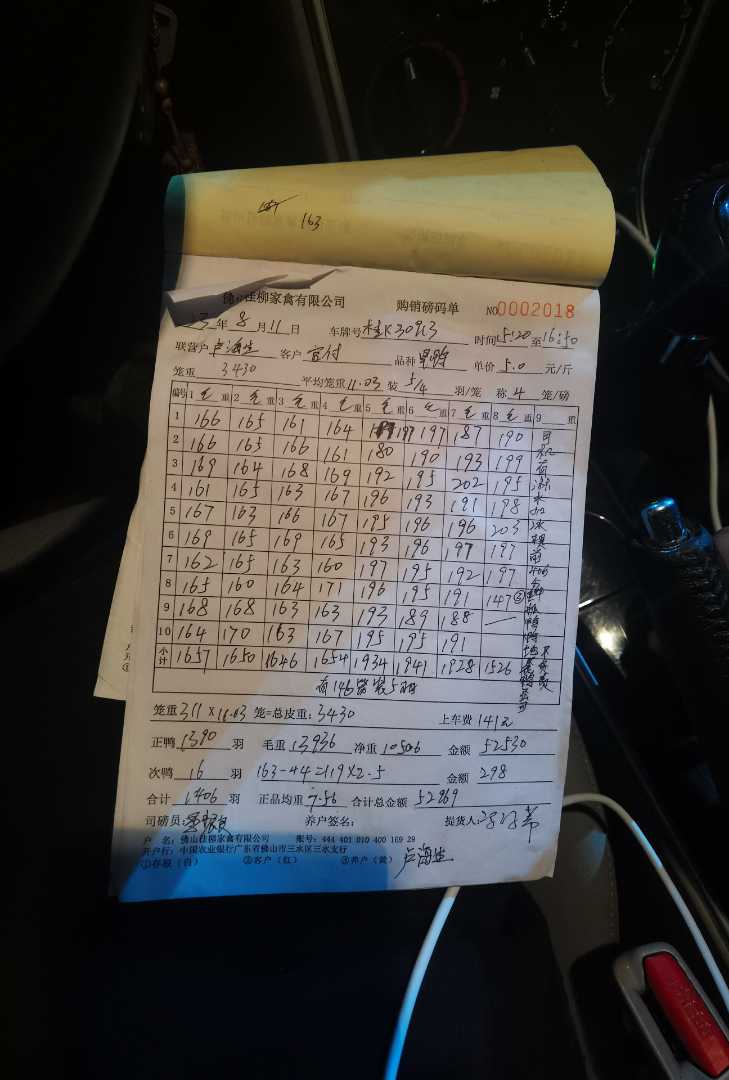 163
佛山桂柳家禽有限公司 购销磅码单 NO0002018
年8月11日 车牌号桂K30913 时间15:20至16:50
联营户卢海生 客户 品种 单价5.0元/斤
笼重3430 平均笼重11.03 装5/4羽/笼 称4笼/磅
编号 1毛重 2毛重 3毛重 4毛重 5毛重 6毛重 7毛重 8毛重 9重
1 166 165 161 164 197 197 187 190
2 166 165 166 161 180 190 193 199
3 169 164 168 169 192 195 202 195
4 161 165 163 167 196 193 191 198
5 167 163 166 167 195 196 196 203
6 169 165 169 165 193 196 197 197
7 162 165 163 160 197 195 192 197
8 165 160 164 171 196 195 191 147③
9 168 168 163 163 193 189 188 —
10 164 170 163 167 195 195 191
小计 1657 1650 1646 1654 1934 1941 1928 1526
有146笼装5羽
笼重311×11.03笼=总皮重:3430 上车费141元
正鸭1390羽 毛重13936 净重10506 金额52530
次鸭16羽 163-44=119×2.5 金额298
合计1406羽 正品均重7.56 合计总金额52869
司磅员: 养户签名: 提货人:
户 名:佛山桂柳家禽有限公司 账号:444 401 010 400 169 29
开户行:中国农业银行广东省佛山市三水区三水支行
①存根(白) ②客户(红) ③养户(黄) 卢海生